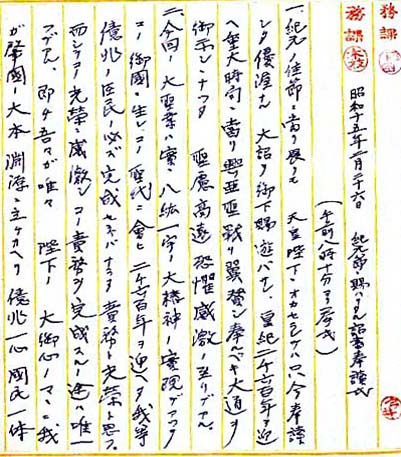 務課
務課 昭和十五年二月二十六日 紀元節ニ賜ハリタル詔書奉讀式
(午前八時十分ヨリ挙式)
一、紀元ノ佳節ニ當リ畏クモ 天皇陛下ニオカセラレテハ只今奉讀
シタ優渥ナル 大詔ヲ御下賜遊バサレ、皇紀二千六百年ヲ迎
ヘ至大時局ニ當リ興亜聖戰ヲ翼賛シ奉ルベキ大道ヲ
御示シニナツタ 聖慮高遠恐懼感激ノ至リデアル。
二、今回ノ大聖業ハ實ニ八紘一宇ノ大精神ノ實現デアツテ
コノ御國ニ生レコノ聖代ニ會ヒ二千六百年ヲ迎ヘタ我等
億兆ノ臣民ハ必ズ完成セネバナラヌ責務ト光榮ト思フ。
而シテコノ光榮ニ感激シコノ責務ヲ完成スルノ途ハ唯一
ツデアル、即チ吾々ガ唯々 陛下ノ 大御心ノマニマニ我
ガ肇國ノ大本淵源ニ立チカヘリ億兆一心國民一体